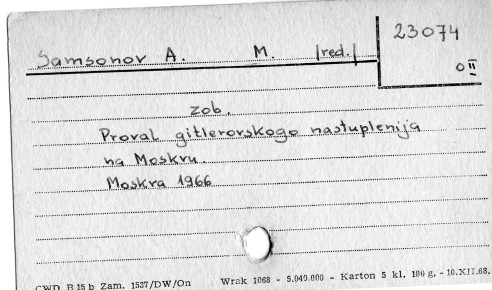 Samsonov A. M. /red./
23074
0 II
zob.
Proval gitlerovskogo nastuplenija
na Moskvu.
Moskva 1966
CWD B 15 b Zam. 1537/DW/On Wrak 1068 - 5.040.000 - Karton 5 kl. 180 g. - 10.XII.68.